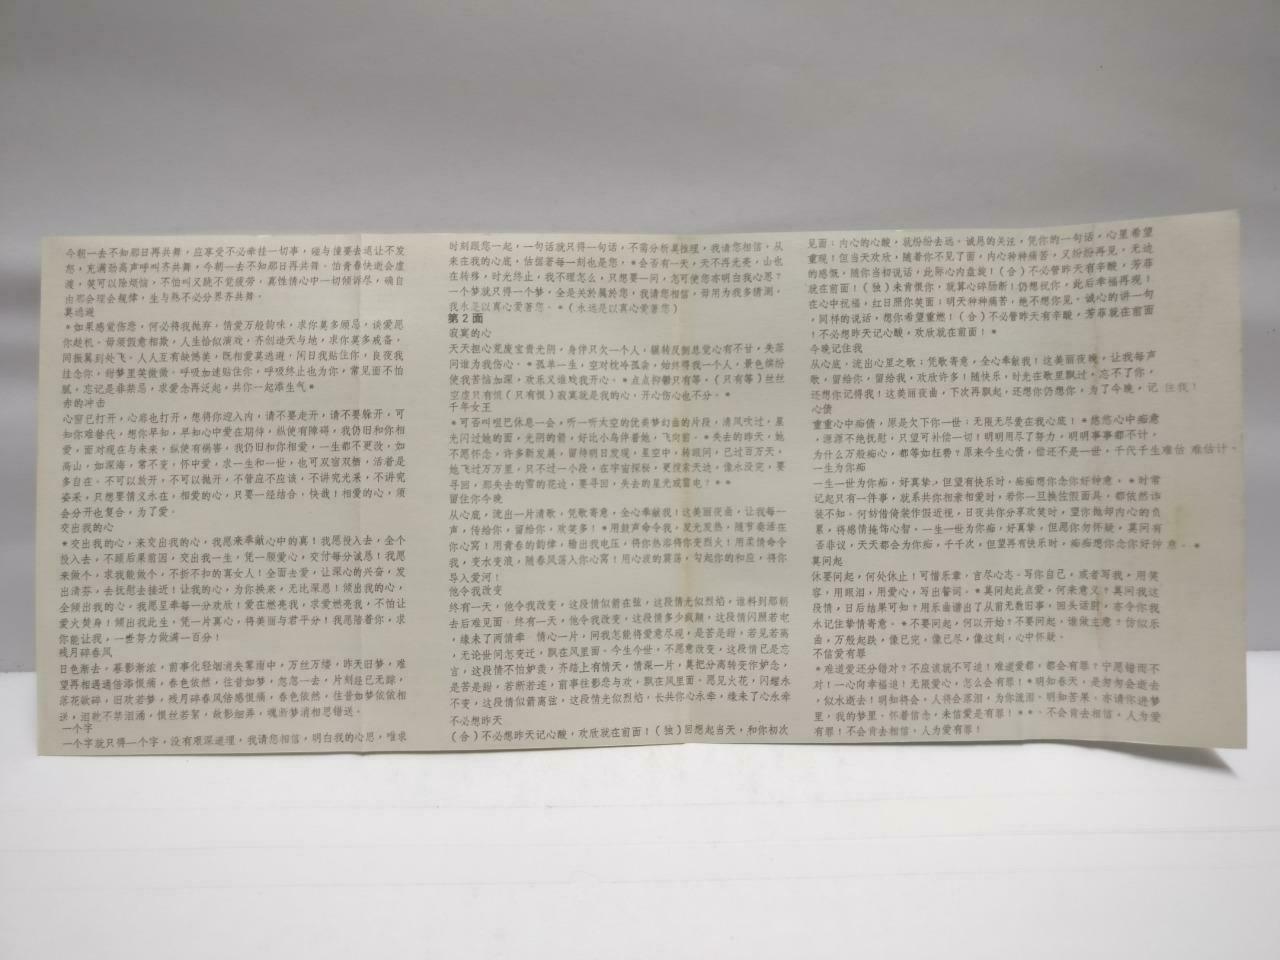 今朝一去不知那日再共舞，应享受不必牵挂一切事，碰与撞要去退让不发
怒，充满劲高声呼叫齐共舞，今朝一去不知那日再共舞。怕青春快逝会虚
渡，笑可以除烦恼，不怕叫又跳不觉疲劳，真性情心中一切倾诉尽，确自
由那会理会规律，生与熟不必分界齐共舞。
莫逃避
*如果感觉伤悲，何必将我抛弃，情爱万般韵味，求你莫多顾忌，谈爱愿
你趁机，毋须假意相欺，人生恰似演戏，齐创造天与地，求你莫多戒备，
同振翼到处飞。人人互有缺憾美，既相爱莫逃避，闲日我贴住你，良夜我
挂念你，甜梦里笑微微。呼吸加速贴住你，呼吸终止也为你，常见面不怕
腻，忘记是非禁忌，求爱念再泛起，共你一起添生气*
赤的冲击
心窗已打开，心扉也打开，想得你迎入内，请不要走开，请不要躲开，可
知你难替代，想你早知，早知心中爱在期待，纵使有障碍，我仍旧和你相
爱，面对现在与未来，纵使有祸害，我仍旧和你相爱，一生都不更改，如
高山，如深海，常不变，怀中爱，求一生和一世，也可双宿双栖，活着是
多自在。不可以放开，不可以抛开，不管应不应该，不讲究光来，不讲究
姿采，只想要情义永在，相爱的心，只要一经结合，快哉！相爱的心，须
会分开也复合，为了爱。
交出我的心
*交出我的心，来交出我的心，我愿来奉献心中的真！我愿投入去，全个
投入去，不顾后果前因，交出我一生，凭一颗爱心，交付每分诚恳！我愿
来做个，求我能做个，不折不扣的真女人！全面去爱，让深心的兴奋，发
出清芬，去抚慰去接近！让我的心，为你换来，无比深恩！倾出我的心，
全倾出我的心，我愿呈奉每一分欢欣！爱在燃亮我，求爱燃亮我，不怕让
爱火焚身！倾出我此生，凭一片真心，将美丽与君平分！我愿陪着你，求
你能让我，一些努力做满一百分！
残月碎春风
日色渐去，暮影渐浓，前事化轻烟消失雾雨中，万丝万缕，昨天旧梦，难
望再相遇通倍添恨痛，春色依然，往昔如梦，忽忽一去，片刻经已无踪，
落花欲碎，旧欢若梦，残月碎春风倍感恨痛，春色依然，往昔如梦依依相
送，泪乾不禁泪涌，恨丝若絮，故影细弄，魂断梦消相思错送。
一个字
一个字就只得一个字，没有艰深道理，我请您相信，明白我的心思，唯求
时刻跟您一起，一句话就只得一句话，不需分析莫推理，我请您相信，从
来住我的心底，估据著每一刻也是您，*会否有一天，天不再光亮，山也
在转移，时光终止，我不理怎么，只想要一问，怎可使您亦明白我心思？
一个梦就只得一个梦，全是关於属於您，我请您相信，毋用为我多猜测，
我永是以真心爱著您。*（永远是以真心爱著您）
第2面
寂寞的心
天天担心荒废宝贵光阴，身伴只欠一个人，辗转反侧总觉心有不甘，失落
问谁为我伤心。*孤单一生，空对枕冷孤衾，始终得我一个人，景色缤纷
使我苦恼加深，欢乐又谁残我开心。*点点抑郁只有等，（只有等）丝丝
空虚只有恨（只有恨）寂寞就是我的心，开心伤心也不分。*
千年女王
*可否叫咀巴休息一会，听一听大空的优美梦幻曲的片段，清风吹过，星
光闪过她的面，光阴的箭，好比小鸟伴着她，飞向前。*失去的昨天，她
不愿怀念，许多新发展，留待明日发现，星空中，转瞬间，已过百万天，
她飞过万万里，只不过一小段，在宇宙探秘，更搜索天边，像永没完，要
寻回，那失去的雪的花边，要寻回，失去的星光或雷电？**
留住你今晚
从心底，流出一片清歌，凭歌寄意，全心奉献我！这美丽夜曲，让我每一
声，传给你，留给你，欢笑多！*用鼓声命令我，发光发热，随节奏活在
你心窝！用青春的韵律，输出我电压，将你热溶将你变烈火！用柔情命令
我，变水变浪，随春风荡入你心窝！用心波的震荡，勾起你的和应，将你
导入爱河！
他令我改变
终有一天，他令我改变，这段情似箭在弦，这段情光似烈焰，谁料到那朝
去后难见面。终有一天，他令我改变，这段情多少疯颠，这段情闪照若电
，缘未了两情牵 情心一片，问我怎能将爱意尽现，是苦是甜，若见若离
，无论世间怎变迁，飘在风里面。今生今世，不愿意改变，这段情已是忘
言，这段情不怕妒羡，齐踏上有情天，情深一片，莫把分离转变作妒念，
是苦是甜，若断若连，前事往影悲与欢，飘在风里面，愿见火花，闪耀永
不变，这段情似箭离弦，这段情光似烈焰，长共你心永牵，缘未了心永牵
不必想昨天
（合）不必想昨天记心酸，欢欣就在前面！（独）回想起当天，和你初次
见面；内心的心酸，就纷纷去远。诚恳的关注，凭你的一句话，心里希望
重现！但当天欢欣，随着你不见了面，内心种种痛苦，又纷纷再见，无边
的感慨，随你当初说话，此际心内盘旋！（合）不必管昨天有辛酸，芳菲
就在前面！（独）未肯恨你，就算心碎肠断！仍想祝你，此后幸福再现！
在心中祝福，红日照你笑面！明天种种痛苦，绝不想你见。诚心的讲一句
，同样的说话，想你希望重燃！（合）不必管昨天有辛酸，芳菲就在前面
！不必想昨天记心酸，欢欣就在前面！*
今晚记住我
从心底，流出心里之歌；凭歌寄意，全心奉献我！这美丽夜晚，让我每声
歌，留给你，留给我，欢欣许多！随快乐，时光在歌里飘过，忘不了你，
还想你记得我！这美丽夜曲，下次再飘起，还想你仍想你，为了今晚，记 住我！
心债
重重心中痴债，原是欠下你一世；无限无尽爱在我心底！*悠悠心中痴意
，源源不绝抚慰，只望可补偿一切！明明用尽了努力，明明事事都不计，
为什么万般痴心，都等如枉费？原来今生心债，偿还不是一世，千代千生难估 难估计。
一生为你痴
一生一世为你痴，好真挚，但望有快乐时，痴痴想你念你好钟意。*时常
记起只有一件事，就系共你相亲相爱时，若你一旦换左假面具，都依然诈
装不知。何妨借倚装作假近视，日夜共你分享欢笑时，望你抛却内心的负
累，将感情掩饰心智。一生一世为你痴，好真挚，但愿你勿怀疑，莫问有
否非议，天天都会为你痴，千千次，但望再有快乐时，痴痴想你念你好钟 意。*
莫问起
休要问起，何处休止！可惜乐章，言尽心志。写你自己，或者写我，用笑
容，用眼泪，用爱心，写出誓词。*莫问起此点爱，何来意义？莫问我这
段情，日后结果可知？用乐曲谱出了从前无数旧事，回头话别，亦令你我
永记住挚情寄意。*不要问起，何以开始？不要问起，谁做主意？仿似乐
曲，万般起跌，像已完，像已尽，像这刻，心中怀疑。
不信爱有罪
*难道爱还分错对？不应该就不可追！难道爱都，都会有罪！宁愿错而不
对！一心向幸福追！无限爱心，怎么会有罪！*明知春天，是匆匆会逝去
，似水逝去！明知将会，人将会落泪，为你流泪。明知苦果，亦请你进梦
里，我的梦里，怀着信念，未信爱是有罪！**。不会肯去相信，人为爱
有罪！不会肯去相信，人为爱有罪！